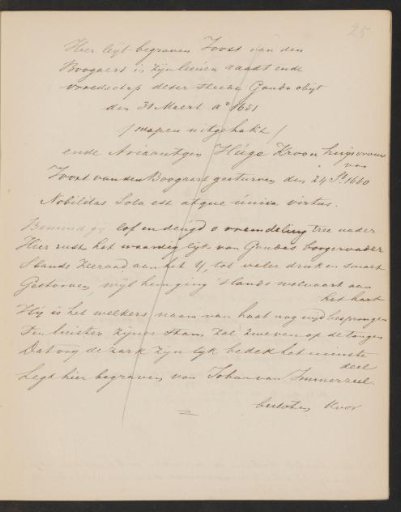 25
Hier leyt begraven Joost van den
Boogaert in zijn leven raadt ende
vroedschap deser steede Gouda obyt
den 31 Maert Aº 1621
/ wapen uitgehakt /
ende Ariaantgen Huige Kroon huijsvrouw
van
Joost van den Boogaart gestorven den 24 1660
Nobilitas Sola est atque unica virtus.
Bemind gij lof en deugd o vreemdeling tree nader
Hier rust het waardig lijk van Goudas borgervader
Stands heerand aan het Y, tot veler druk en smart
Gestorven, wijl hem ging 's lands welvaart aan
het hart
Hij is het welkers naam van haat nog nijd besprongen
Den luister zijner stam zal zweven op de tongen
Dat vrij de zark zijn lijk bedek het minste
deel
Legt hier begraven van Johan van Immerzeel
besloten Koor